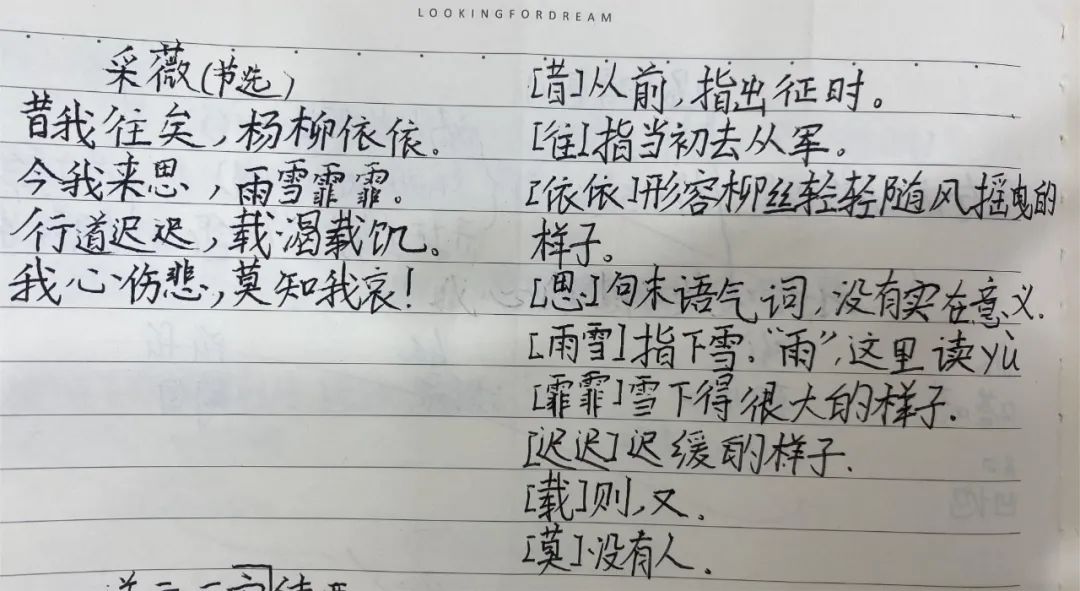 LOOKINGFORDREAM
采薇(节选)
昔我往矣，杨柳依依。
今我来思，雨雪霏霏。
行道迟迟，载渴载饥。
我心伤悲，莫知我哀！
[昔]从前，指出征时。
[往]指当初去从军。
[依依]形容柳丝轻轻随风摇曳的
样子。
[思]句末语气词，没有实在意义.
[雨雪]指下雪.“雨”，这里读yù
[霏霏]雪下得很大的样子.
[迟迟]迟缓的样子.
[载]则，又.
[莫]没有人.